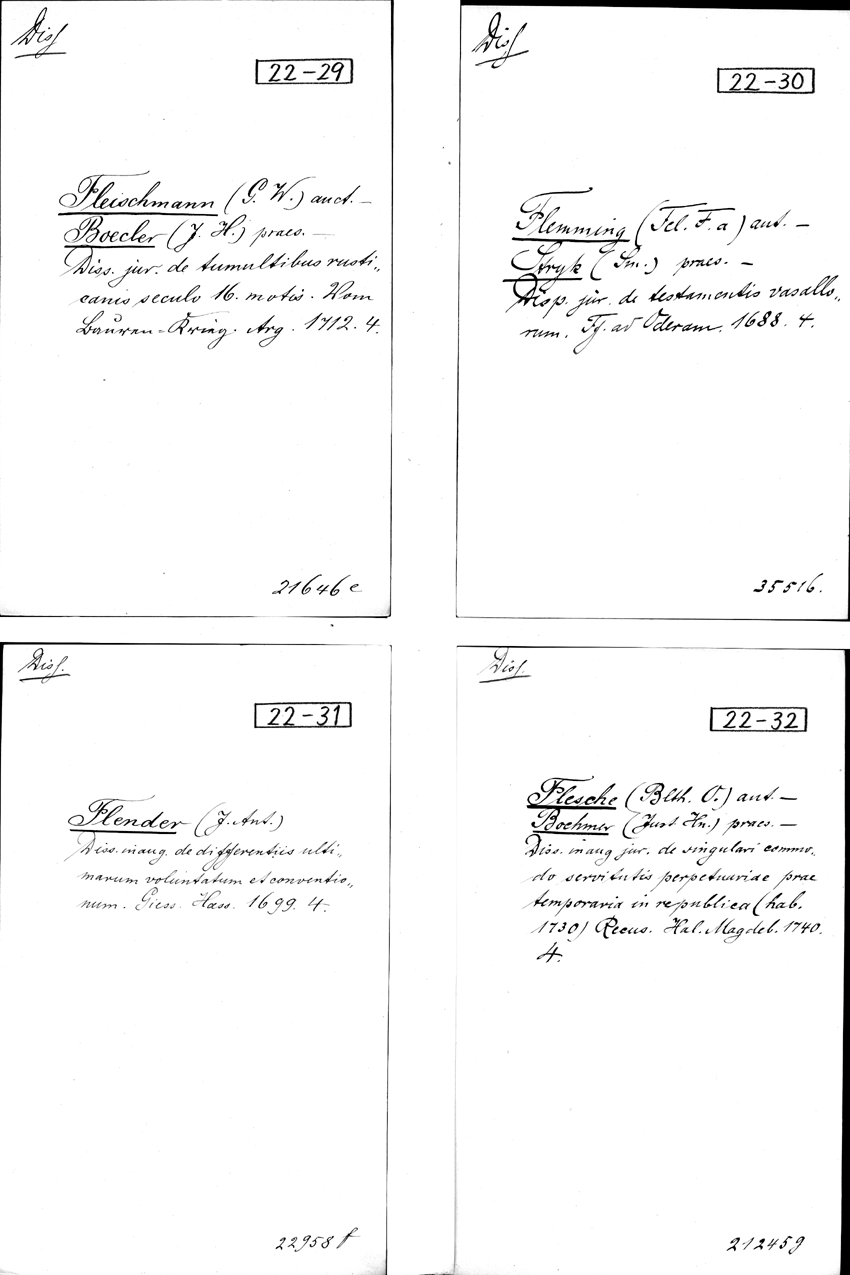 Diss
22-29
Fleischmann (G. W.) auct. —
Boecler (J. H.) praes. —
Diss. jur. de tumultibus rusti„
canis seculo 16. motis. Vom
Bauren=Krieg. Arg. 1712. 4.
21646 e
Diss
22-30
Flemming (Fel. F. a) aut. —
Stryk (Sm.) praes. —
Disp. jur. de testamentis vasallo„
rum. Ff. ad Oderam. 1688. 4.
35516.
Diss.
22-31
Flender (J. Ant.)
Diss. inaug. de differentiis ulti„
marum voluntatum et conventio„
num. Giess. Hass. 1699. 4.
22958 f
Diss.
22-32
Flesche (Blth. O.) aut. —
Boehmer (Just Hn.) praes. —
Diss. inaug jur. de singulari commo„
do servitutis perpetuariae prae
temporaria in republica (hab.
1730) Recus. Hal. Magdeb. 1740.
4.
21245 g